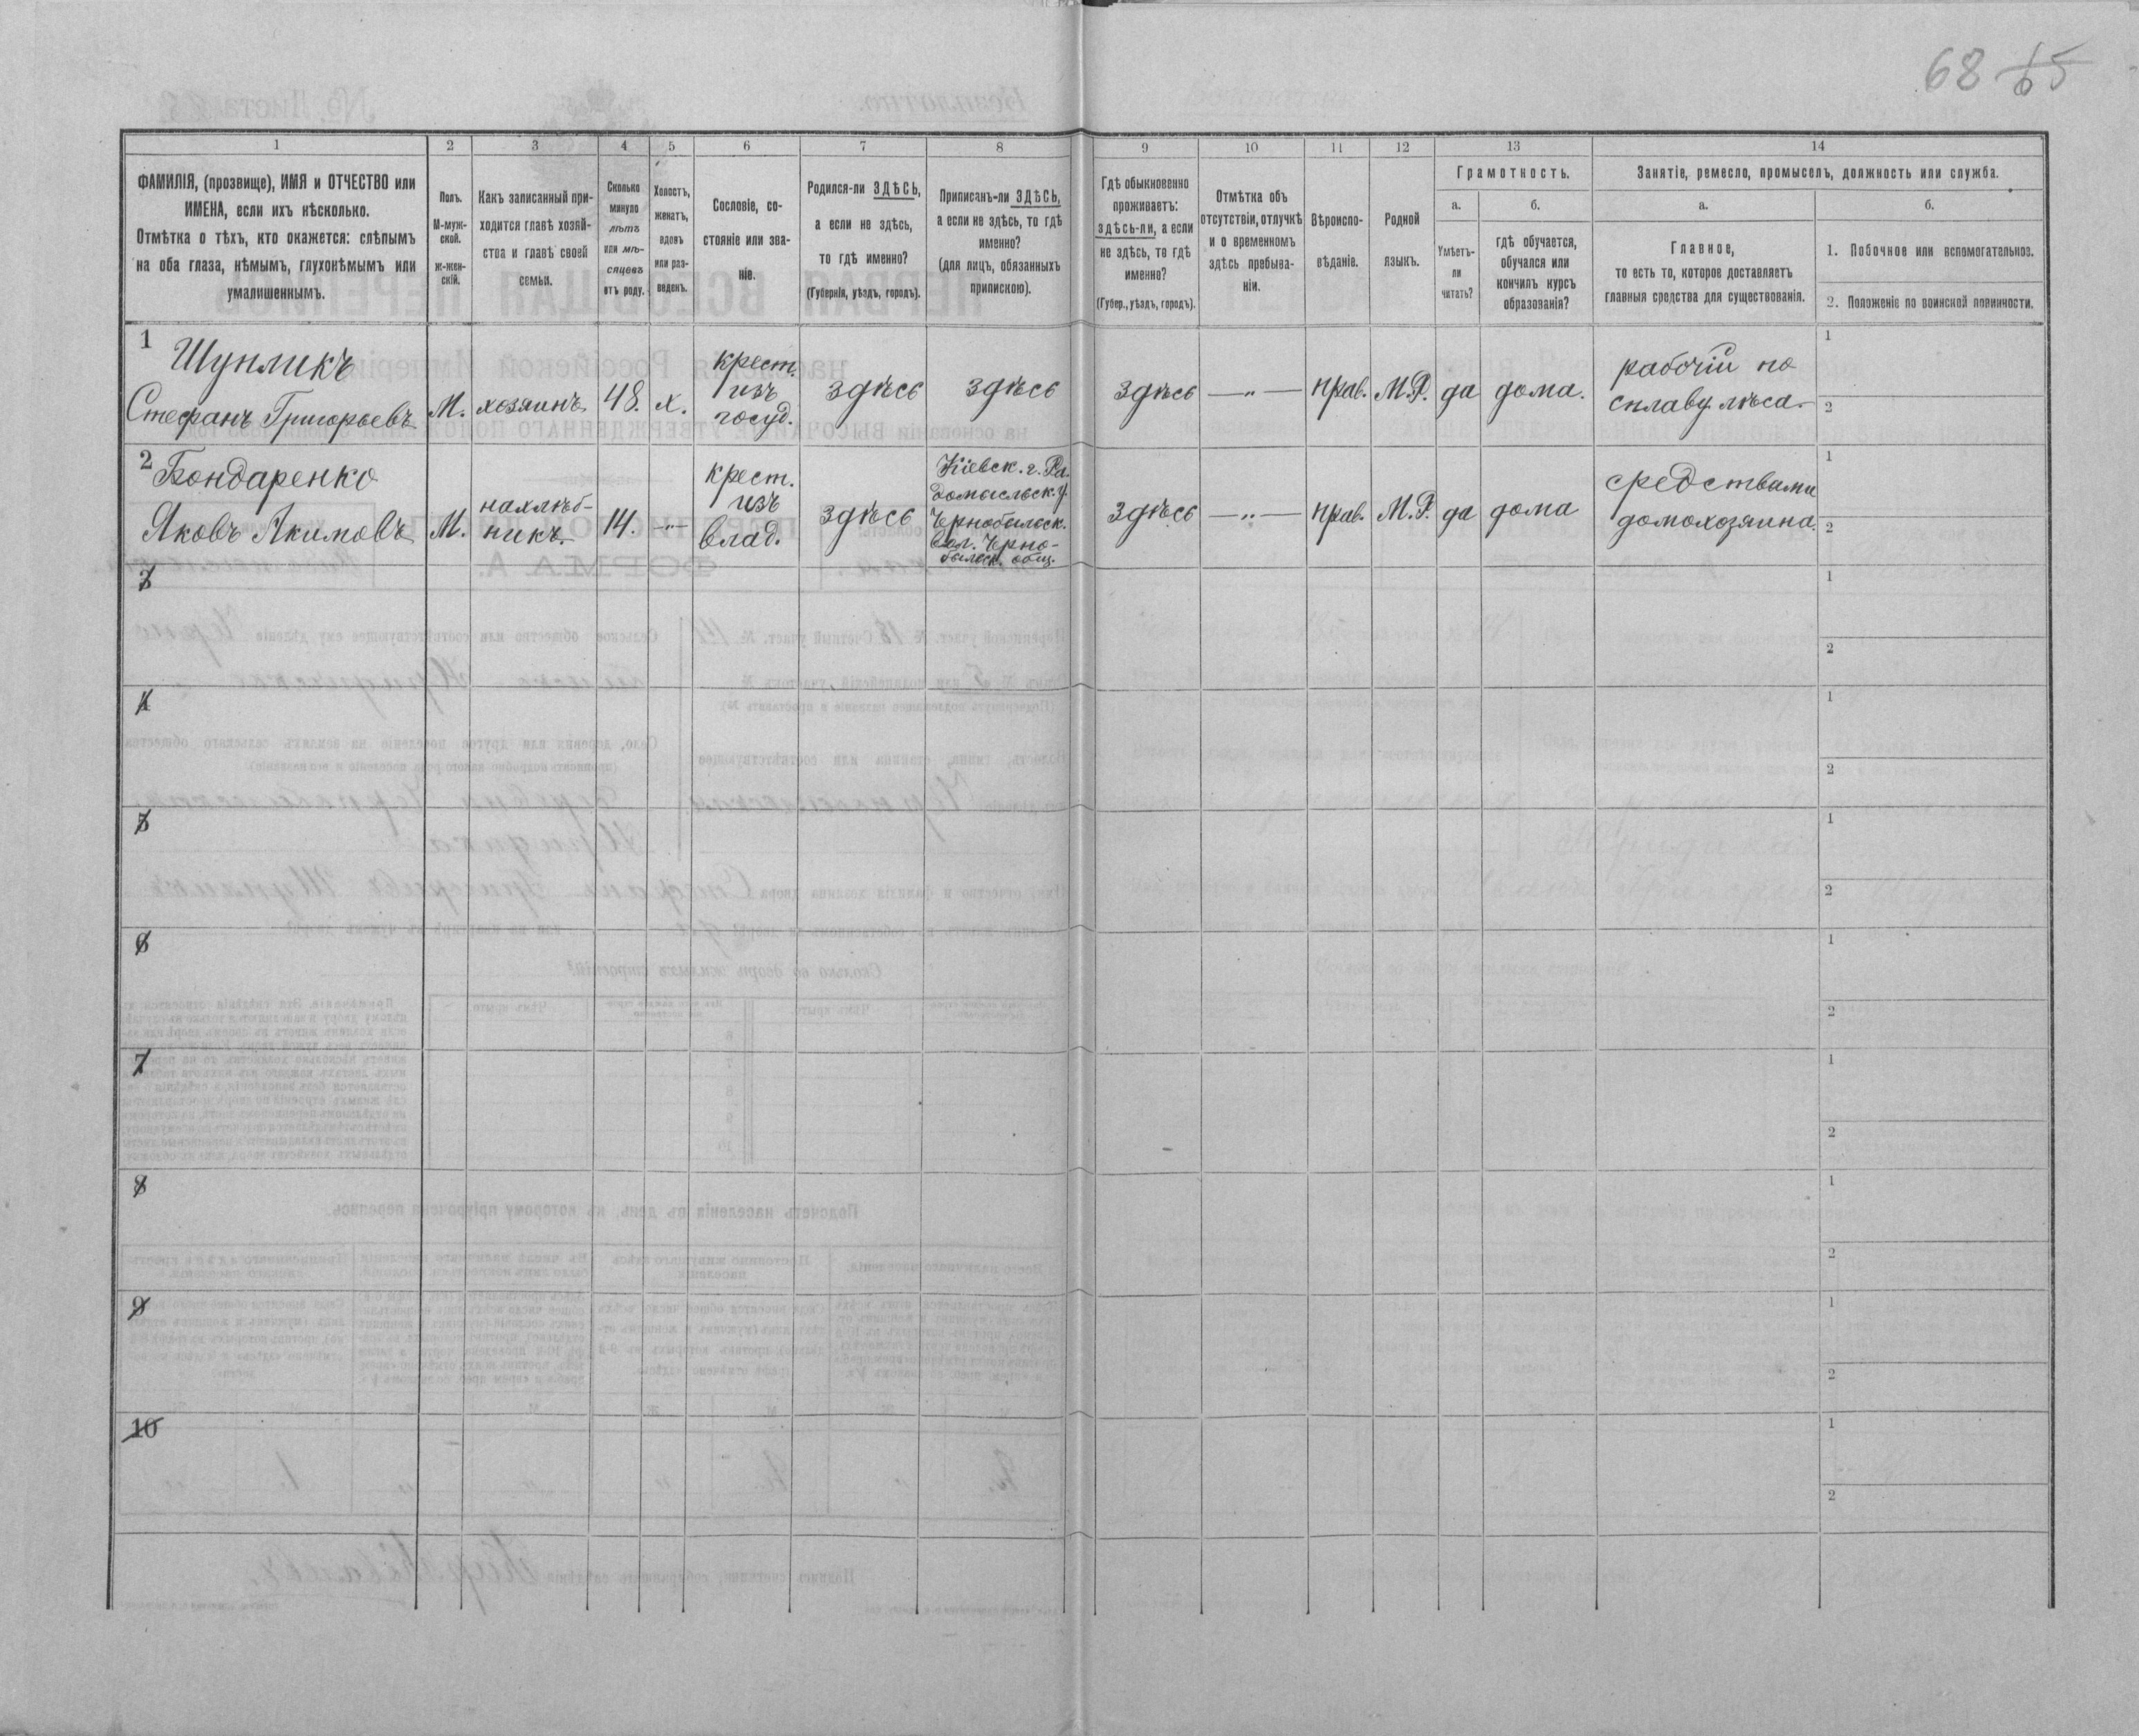 68 65
1 2 3 4 5 6 7 8 9 10 11 12 13 14
ФАМИЛІЯ, (прозвище), ИМЯ и ОТЧЕСТВО или
ИМЕНА, если ихъ нѣсколько.
Отмѣтка о тѣхъ, кто окажется: слѣпымъ
на оба глаза, нѣмымъ, глухонѣмымъ или
умалишеннымъ.
Полъ.
М-муж-
ской.
ж-жен-
скій.
Какъ записанный при-
ходится главѣ хозяй-
ства и главѣ своей
семьи.
Сколько
минуло
лѣтъ
или мѣ-
сяцевъ
отъ роду.
Холостъ,
женатъ,
вдовъ
или раз-
веденъ.
Сословіе, со-
стояніе или зва-
ніе.
Родился-ли ЗДѢСЬ,
а если не здѣсь,
то гдѣ именно?
(Губернія, уѣздъ, городъ).
Приписанъ-ли ЗДѢСЬ,
а если не здѣсь, то гдѣ
именно?
(для лицъ, обязанныхъ
припискою).
Гдѣ обыкновенно
проживаетъ:
здѣсь-ли, а если
не здѣсь, то гдѣ
именно?
(Губер., уѣздъ, городъ).
Отмѣтка объ
отсутствіи, отлучкѣ
и о временномъ
здѣсь пребыва-
ніи.
Вѣроиспо-
вѣданіе.
Родной
языкъ.
Грамотность.
а.
Умѣетъ-
ли
читать?
б.
гдѣ обучается,
обучался или
кончилъ курсъ
образованія?
Занятіе, ремесло, промыселъ, должность или служба.
а.
Главное,
то есть то, которое доставляетъ
главныя средства для существованія.
б.
1. Побочное или вспомогательное.
2. Положеніе по воинской повинности.
1
Шупликъ
Стефанъ Григорьевъ
М.
хозяинъ
48.
х.
крест.
изъ
госуд.
здѣсь
здѣсь
здѣсь
— „ —
прав.
М.Р.
да
дома.
рабочій по
сплаву лѣса.
1
2
2
Бондаренко
Яковъ Акимовъ
М.
нахлѣб-
никъ.
14.
-„-
крест.
изъ
влад.
здѣсь
Кіевск. г. Ра-
домысльск. у.
Чернобыльск.
вол. Черно-
быльск. общ.
здѣсь
— „ —
прав.
М.Р.
да
дома
средствами
домохозяина.
1
2
3
1
2
4
1
2
5
1
2
6
1
2
7
1
2
8
1
2
9
1
2
10
1
2